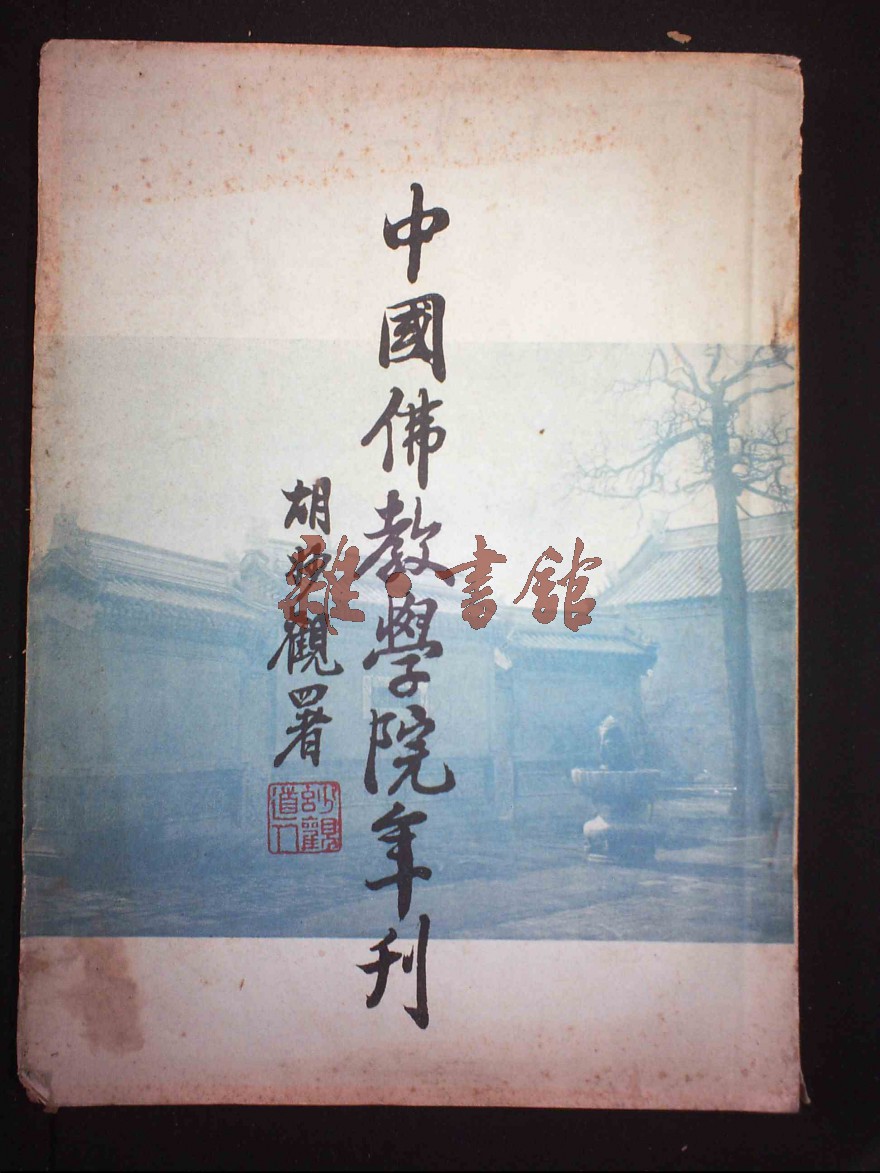 中國佛教學院年刊
胡玅觀署
玅觀道人
雜·書館